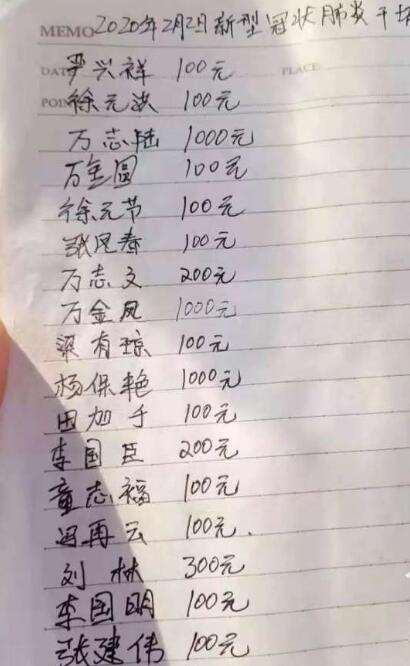 MEMO 2020年2月2日新型冠状肺炎
DAT 严兴祥 100元 PLACE:
POI 徐元洪 100元
万志陆 1000元
万金圆 100元
徐元节 100元
张凤春 100元
万志文 200元
万金凤 1000元
梁有琼 100元
杨保艳 1000元
田加于 100元
李国臣 200元
童志福 100元
冯再云 100元.
刘林 300元
李国明 100元
张建伟 100元